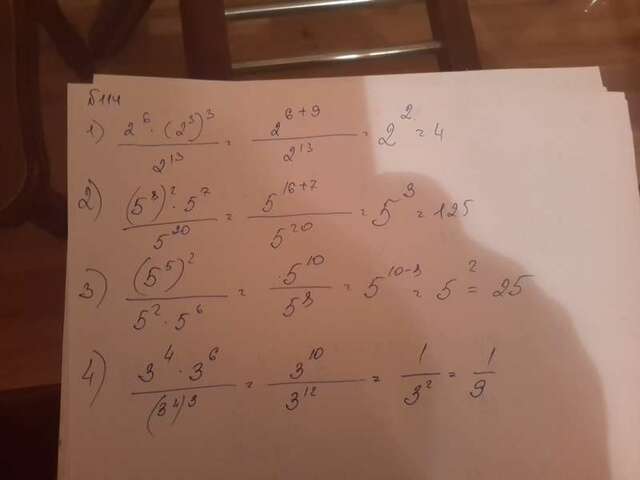 №114
1) 2^6 · (2^3)^3 / 2^13 = 2^(6+9) / 2^13 = 2^2 = 4
2) (5^8)^2 · 5^7 / 5^20 = 5^(16+7) / 5^20 = 5^3 = 125
3) (5^5)^2 / 5^2 · 5^6 = 5^10 / 5^8 = 5^(10-8) = 5^2 = 25
4) 3^4 · 3^6 / (3^4)^3 = 3^10 / 3^12 = 1 / 3^2 = 1 / 9